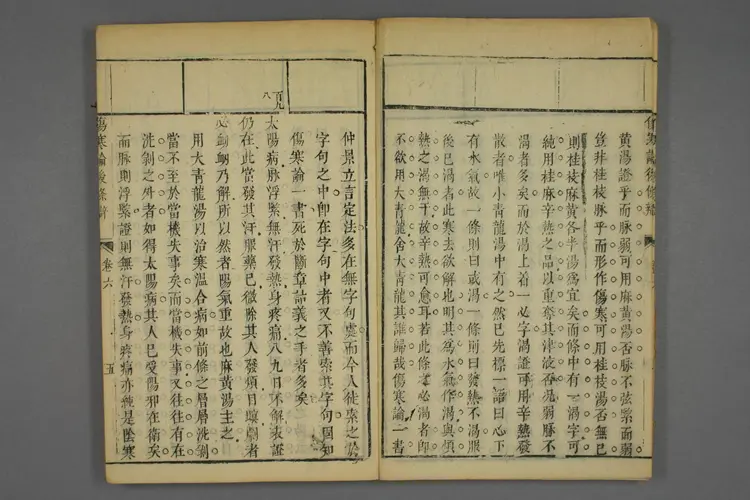 黃湯證乎而脉弱可用麻黃湯否脉不弦緊而弱
豈非桂枝脉乎而形作傷寒可用桂枝湯否無已
則桂枝麻黃各半湯爲宜矣而條中有一渴字可
純用桂麻辛熱之品以重奪其津液否況弱脉不
渴者多矣而於渴上着一必字渴證可用辛熱發
散者唯小靑龍湯中有之然已先標一語曰心下
有水氣故一條則曰或渴一條則曰發熱不渴服
湯已渴者此寒去欲解也明其爲水氣作渴與煩
熱之渴無干故辛熱可愈耳若此條之必渴者卽
不欲用大靑龍舍大靑龍其誰歸哉傷寒論一書
仲景立言定法多在無字句處而今人徒索之於
字句之中卽在字句中者又不善索其字句固知
傷寒論一書死於斷章詁義之手者多矣
太陽病脉浮緊無汗發熱身疼痛八九日不解表證
仍在此當發其汗服藥已微除其人發煩目瞑劇者
必衄衄乃解所以然者陽氣重故也麻黃湯主之
用大靑龍湯以治寒溫合病如前條之層層洗剝
當不至於當機失事矣而當機失事又往往有在
洗剝之外者如得太陽病其人已受陽邪在衛矣
而脉則浮緊證則無汗發熱身疼痛亦純是陰寒
傷寒論後條辨
卷六
五